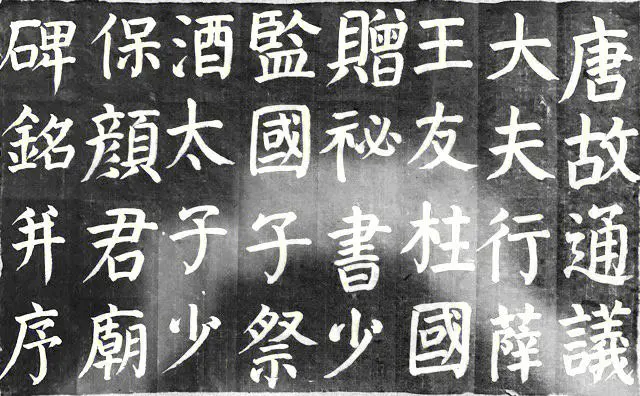 唐故通議
大夫行薛
王友柱國
贈祕書少
監國子祭
酒太子少
保顏君廟
碑銘并序